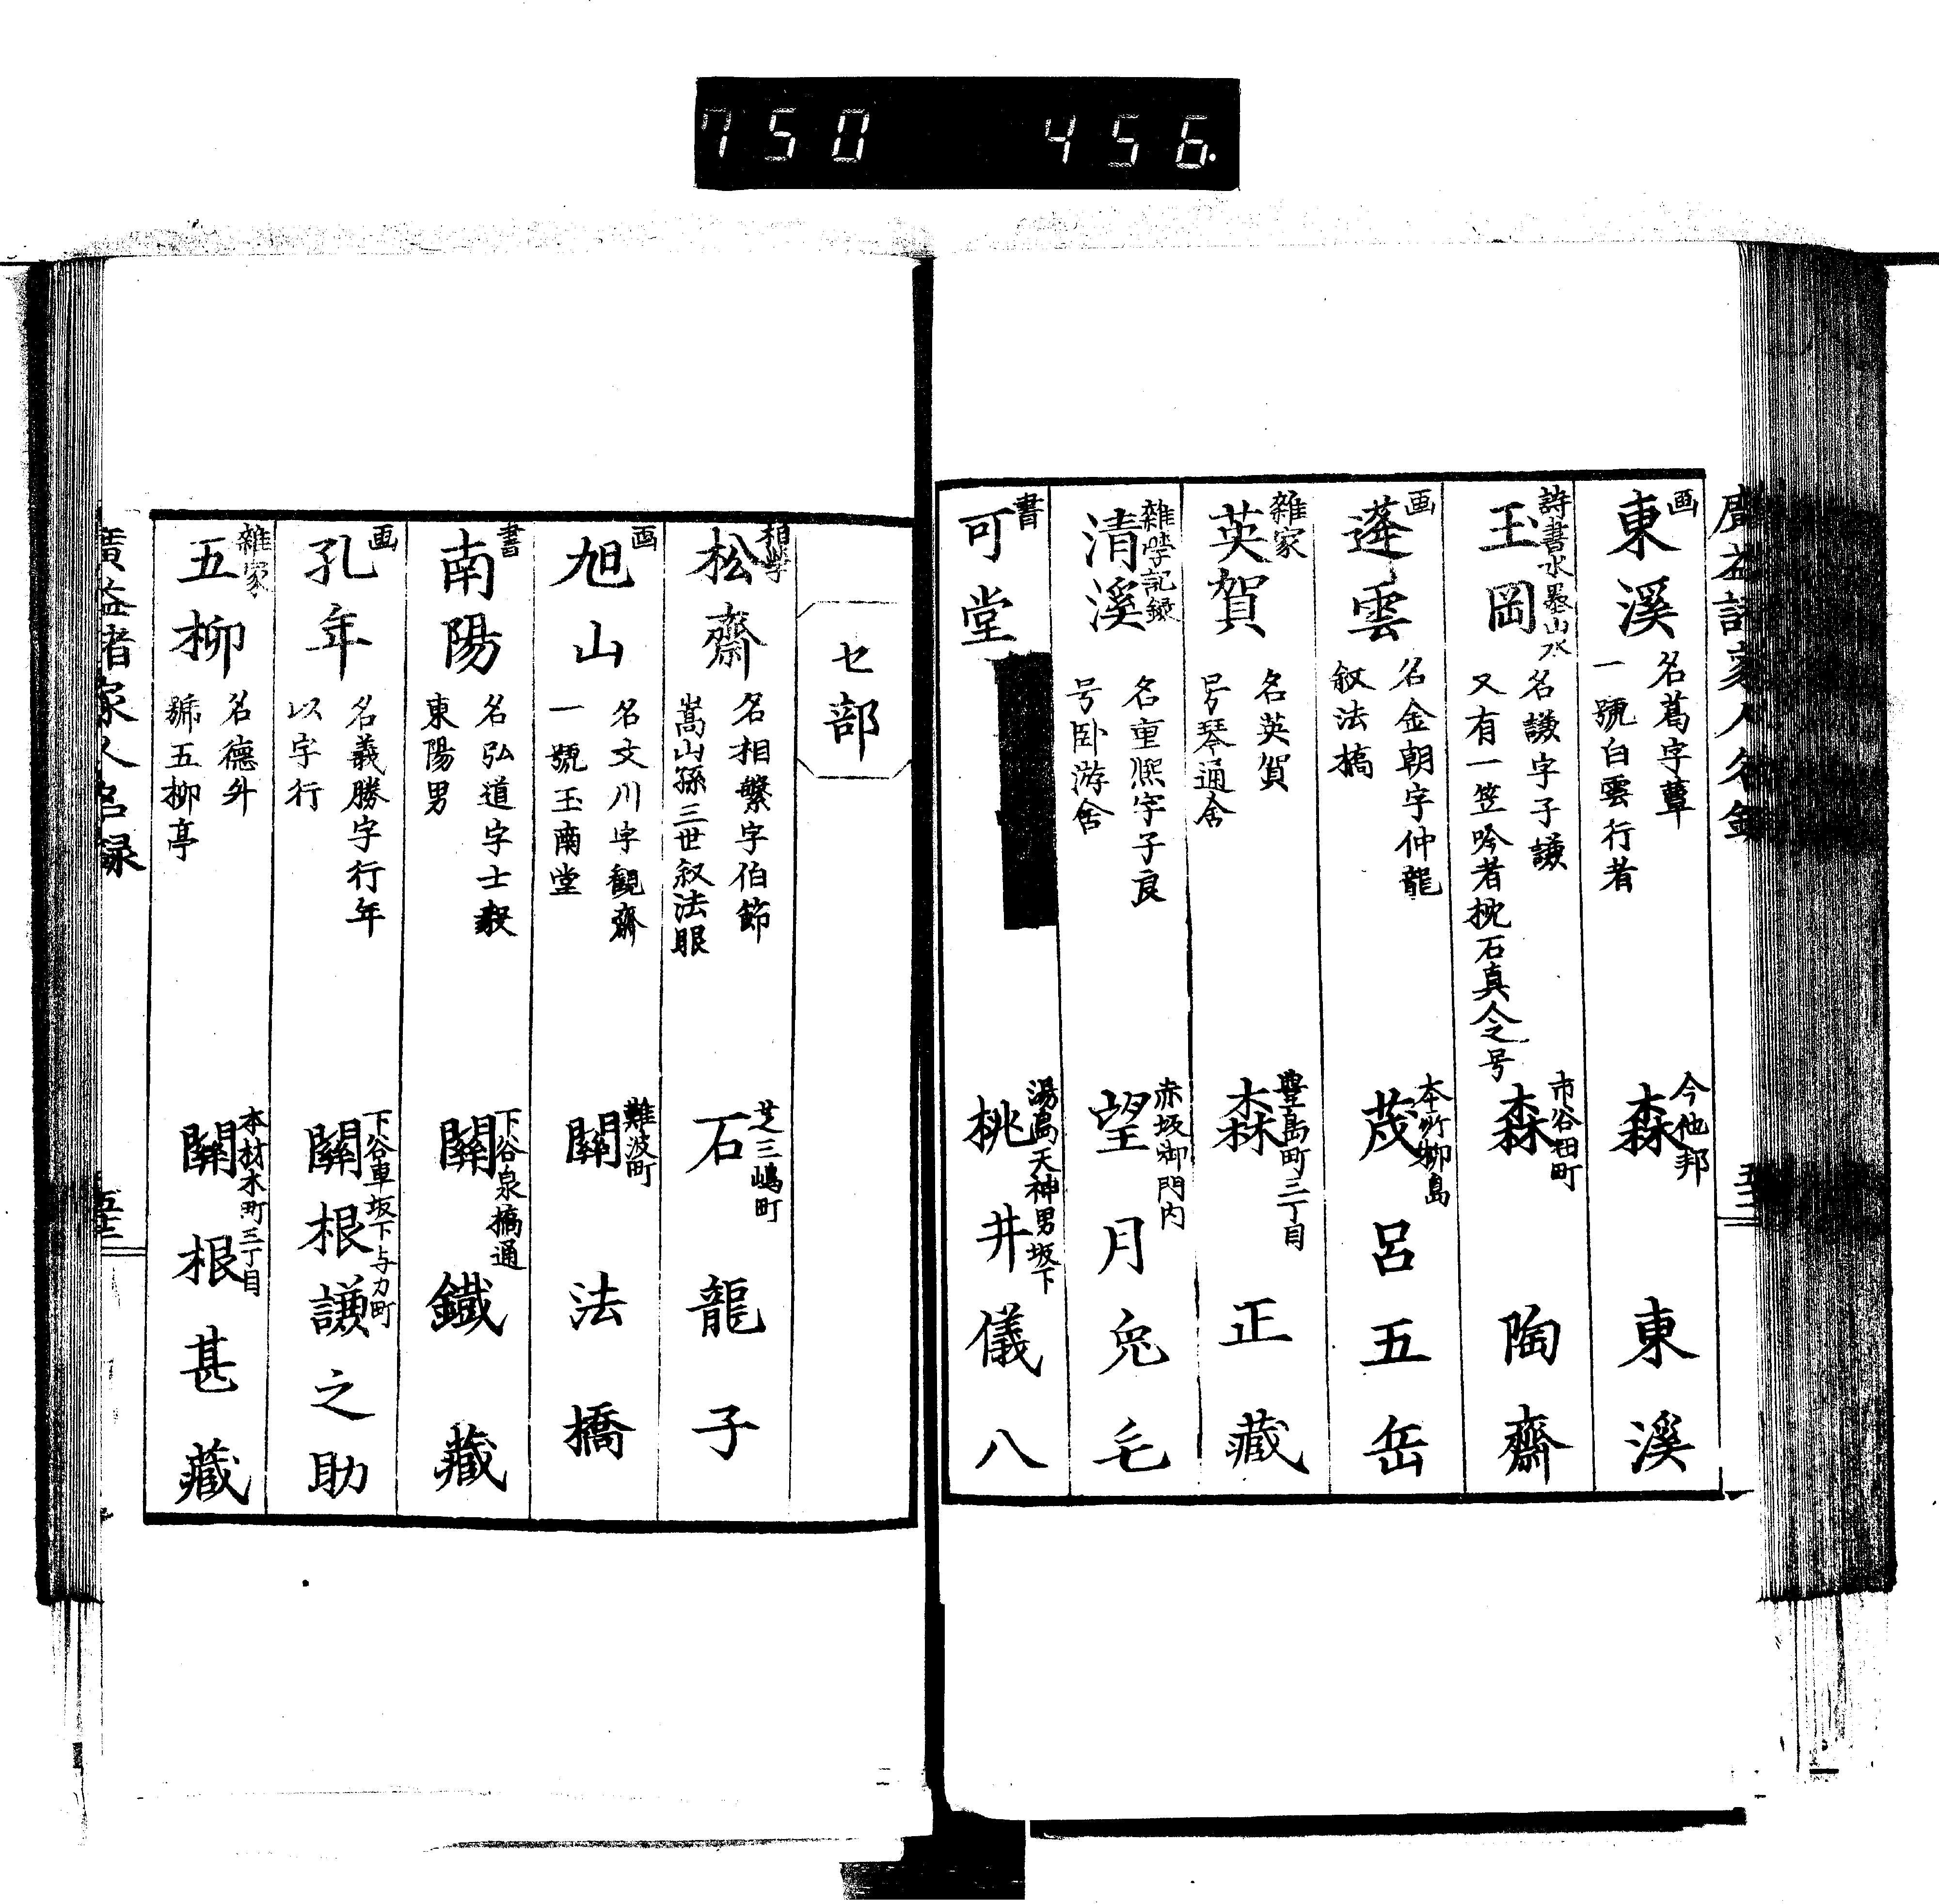 750 456.
画
東溪
名蔿字蕈
一號白雲行者
今他邦
森東溪
詩書水墨山水
玉岡
名謙字子謙
又有一笠吟者枕石真人之号
市谷田町
森陶齋
画
蓬雲
名金朝字仲龍
叙法橋
本所柳島
茂呂五岳
雜家
英賀
名英賀
号琴通舎
豊島町三丁目
森正藏
雜学記録
清溪
名重熈字子良
号卧游舎
赤坂御門内
望月兔毛
書
可堂
湯島天神男坂下
桃井儀八
セ部
相学
松齋
名相繁字伯節
嵩山孫三世叙法眼
芝三嶋町
石龍子
画
旭山
名文川字観齋
一號玉南堂
難波町
關法橋
書
南陽
名弘道字士毅
東陽男
下谷泉橋通
關鐵藏
画
孔年
名義勝字行年
以字行
下谷車坂下与力町
關根謙之助
雜家
五柳
名德升
號五柳亭
本材木町三丁目
關根甚藏
廣益諸家人名録